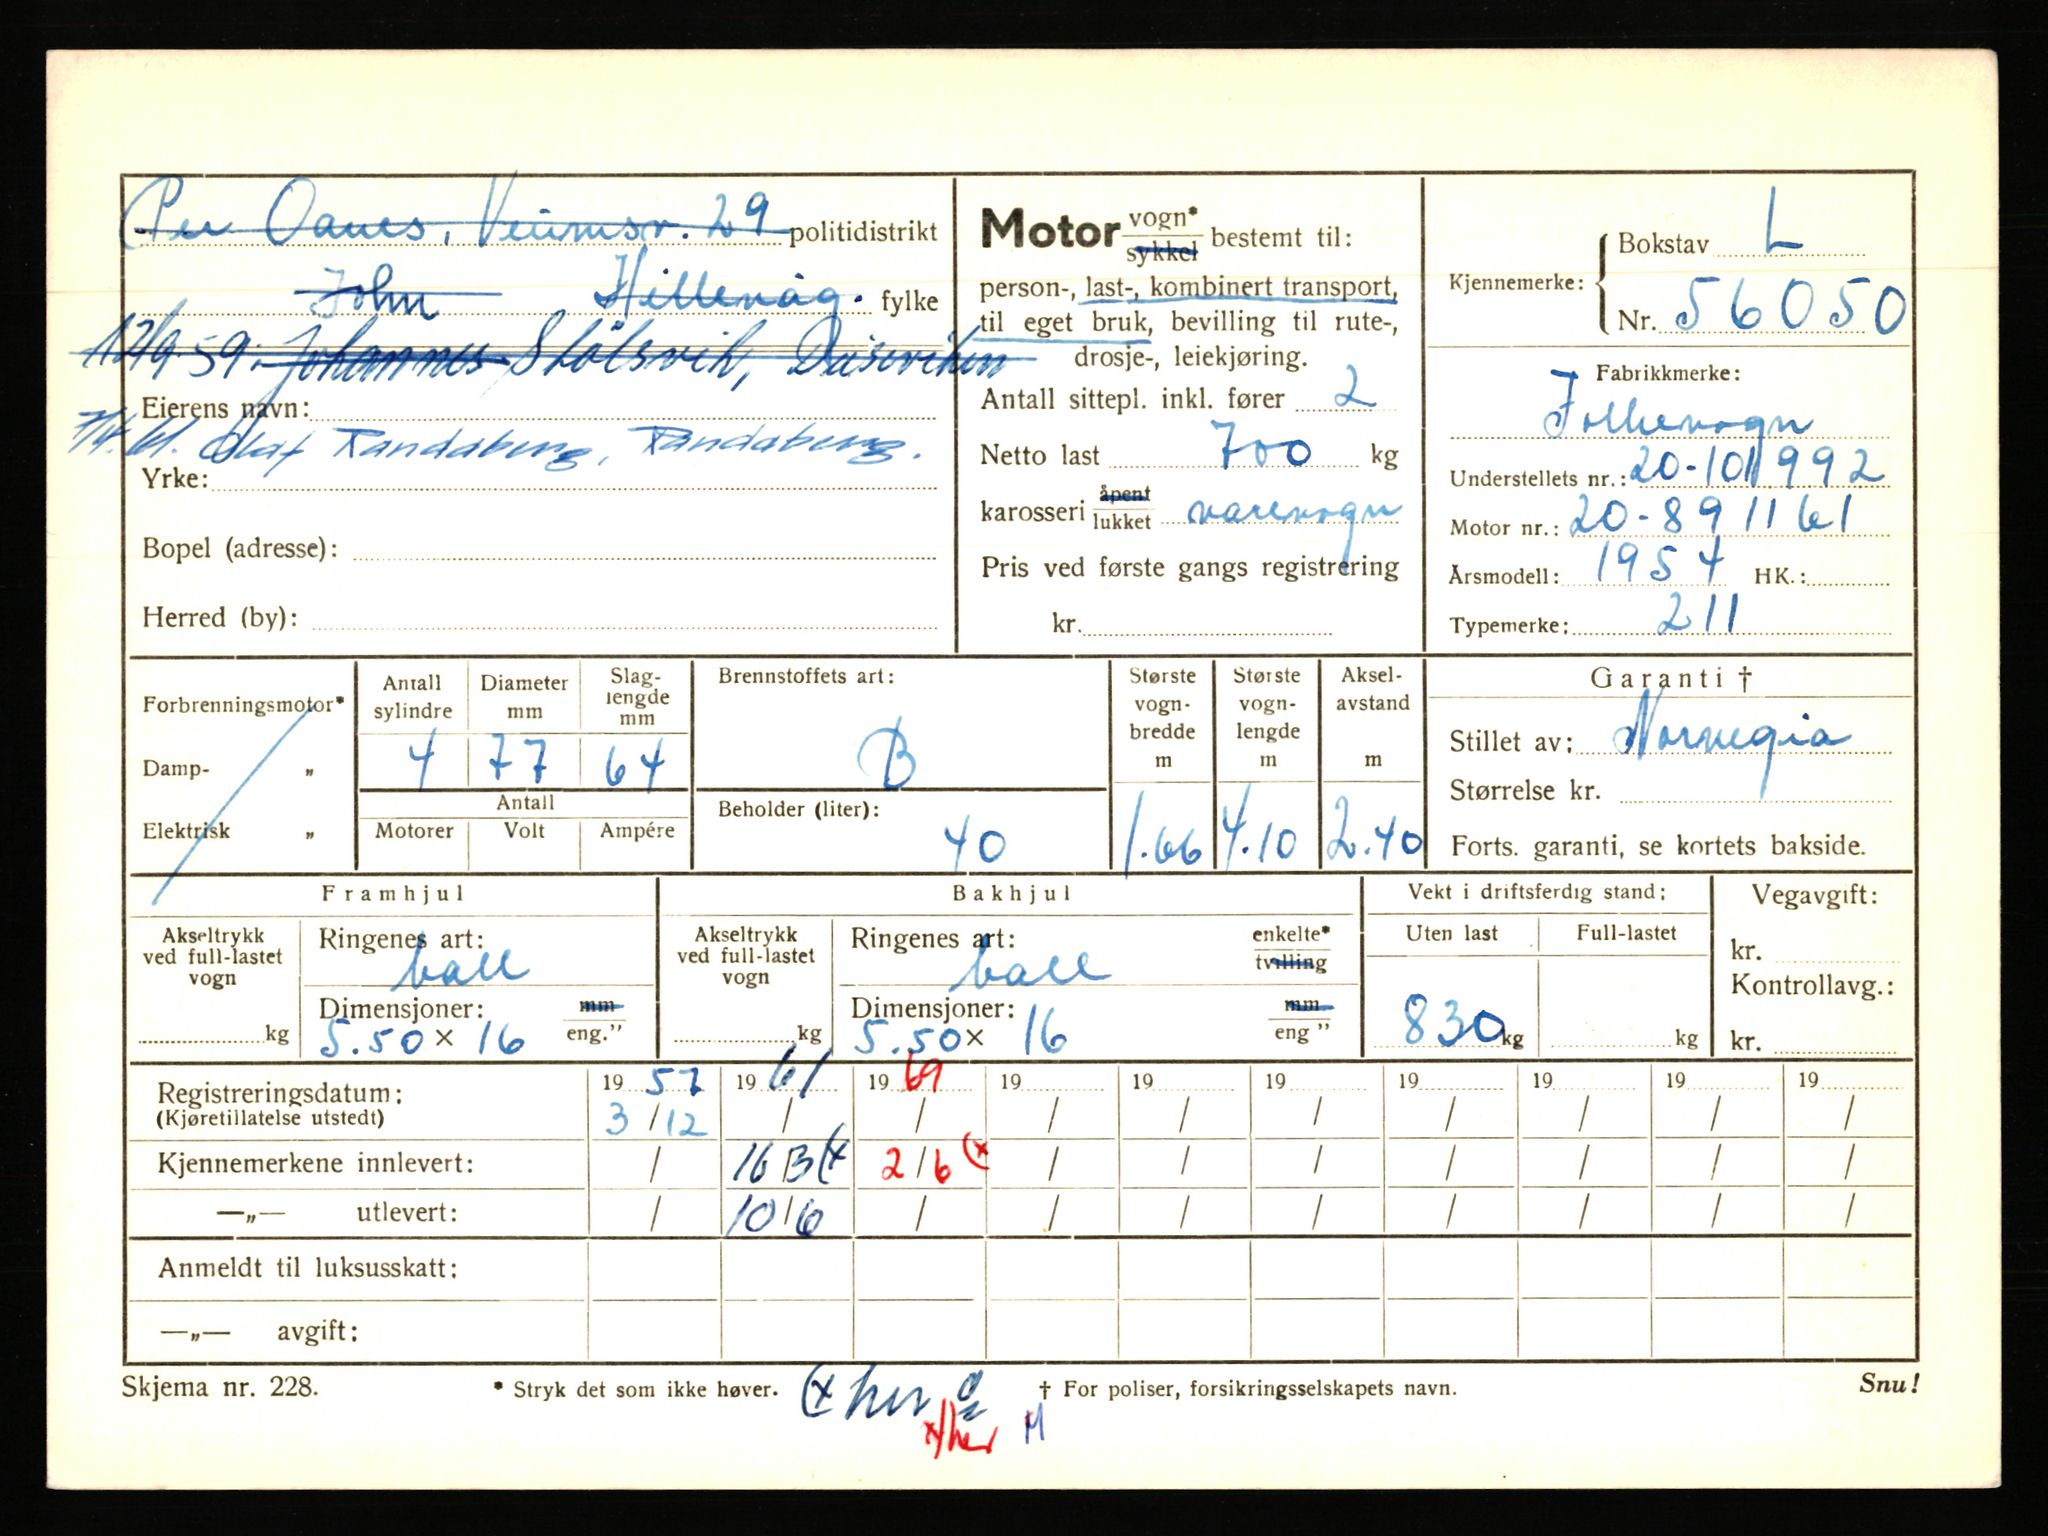 Per Oanes, 29 politidistrikt
John Hillevåg. fylke
12/9.59. Johannes Stølsvik, Dusevikin
Eierens navn:
Olaf Randaberg, Randaberg.
Yrke:
Bopel (adresse):
Herred (by):
Motor vogn* sykkel bestemt til:
person-, last-, kombinert transport,
til eget bruk, bevilling til rute-,
drosje-, leiekjøring.
Antall sittepl. inkl. fører 2
Netto last 700 kg
karosseri åpent lukket varevogn
Pris ved første gangs registrering
kr.
Kjennemerke: Bokstav L
Nr. 56050
Fabrikkmerke:
Folkevogn
Understellets nr.: 20-101992
Motor nr.: 20-891161
Årsmodell: 1954 HK.:
Typemerke: 211
Forbrenningsmotor*
Damp- „
Elektrisk „
Antall sylindre 4
Diameter mm 77
Slag- lengde mm 64
Antall
Motorer Volt Ampére
Brennstoffets art:
B
Beholder (liter):
40
Største vogn- bredde m 1.66
Største vogn- lengde m 4.10
Aksel- avstand m 2.40
Garanti †
Stillet av: Norvegia
Størrelse kr.
Forts. garanti, se kortets bakside.
Framhjul
Akseltrykk ved full-lastet vogn
kg
Ringenes art:
ball
Dimensjoner: mm
5.50 x 16 eng."
Bakhjul
Akseltrykk ved full-lastet vogn
kg
Ringenes art: enkelte* tvilling
ball
Dimensjoner: mm
5.50 x 16 eng "
Vekt i driftsferdig stand:
Uten last Full-lastet
830 kg kg
Vegavgift:
kr.
Kontrollavg.:
kr.
Registreringsdatum: 1957 1961 1969 19 19 19 19 19 19 19
(Kjøretillatelse utstedt) 3/12 / / / / / / / / /
Kjennemerkene innlevert: / 16/3 (x 2/6 (x / / / / / / /
—„— utlevert: / 10/6 / / / / / / / /
Anmeldt til luksusskatt:
—„— avgift:
Skjema nr. 228. * Stryk det som ikke høver. (x her † For poliser, forsikringsselskapets navn. Snu!
x/her M